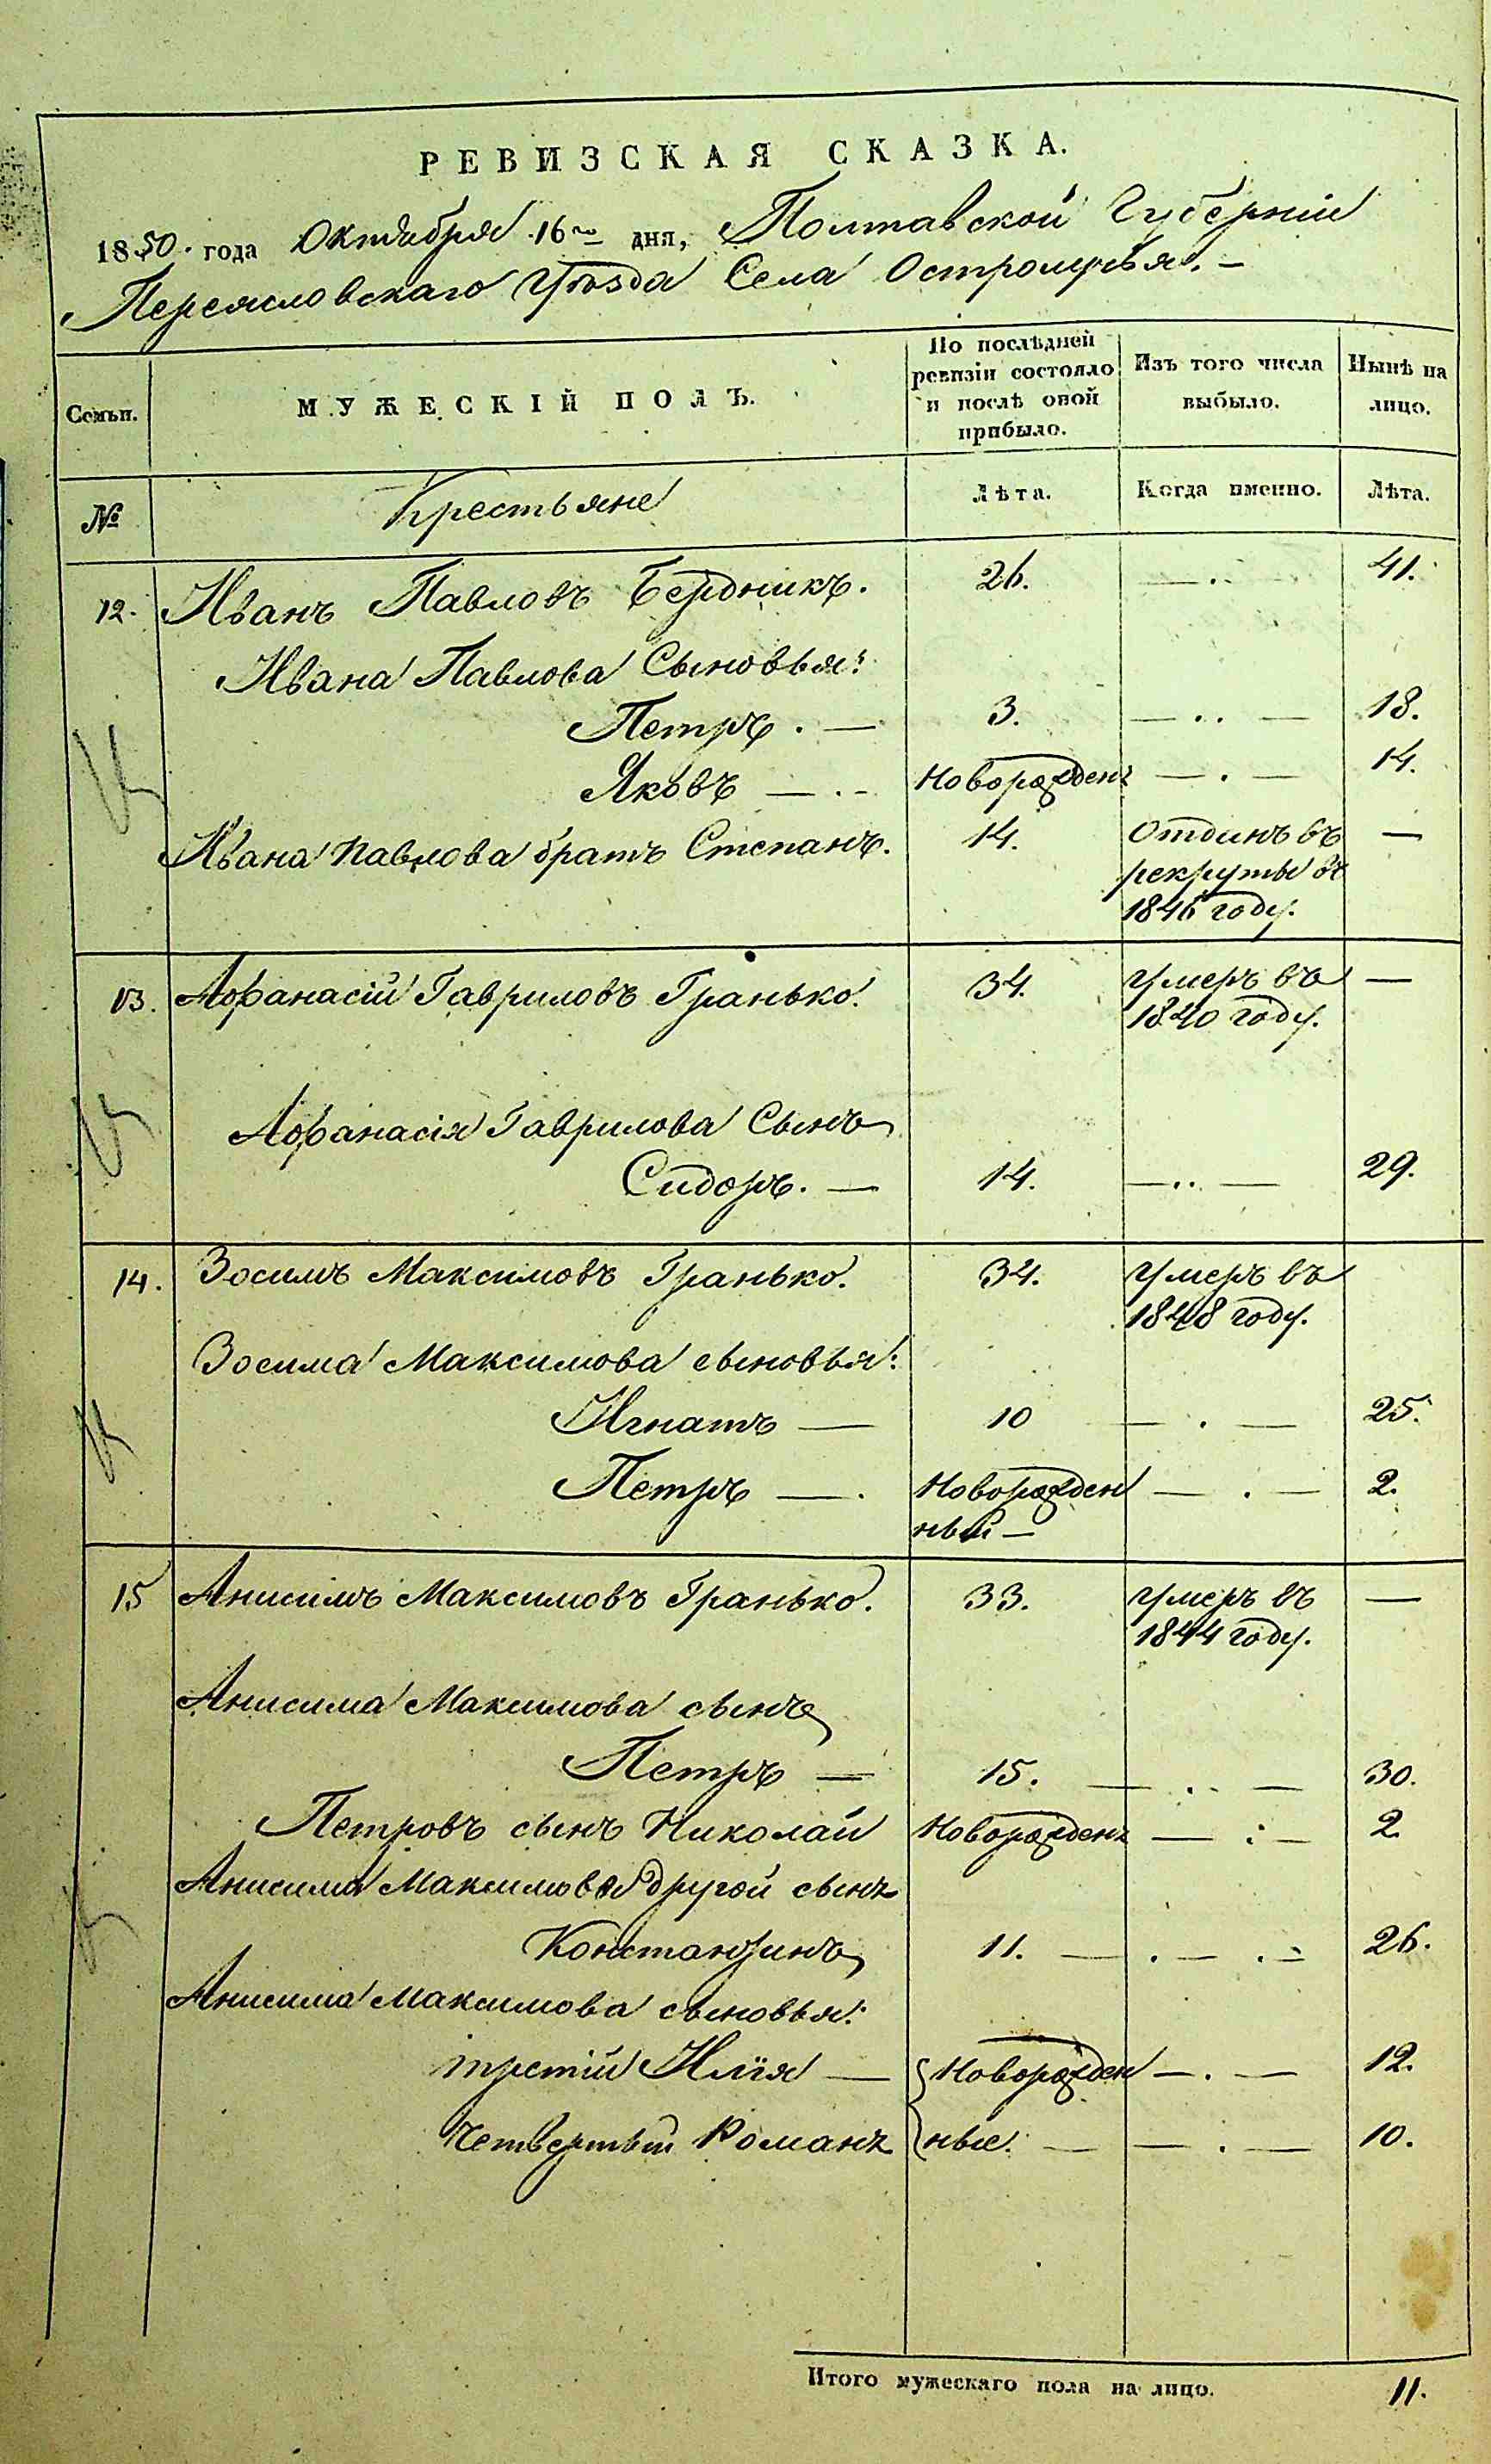 РЕВИЗСКАЯ СКАЗКА.
1850. года Октября 16го дня, Полтавской Губерніи
Переясловскаго Уѣзда Села Остролучья. —
Семьи.
МУЖЕСКІЙ ПОЛЪ.
По послѣдней ревизіи состояло и послѣ оной прибыло.
Изъ того числа выбыло.
Нынѣ на лицо.
№ Крестьяне Лѣта. Когда именно. Лѣта.
12. Иванъ Павловъ Бердникъ. 26. — . 41.
Ивана Павлова Сыновья:
Петръ. — 3. — .. — 18.
Яковъ — . - Новорожденъ — . — 14.
Ивана Павлова братъ Степанъ. 14. Отданъ въ —
рекруты въ
1846 году.
13. Афанасій Гавриловъ Гранько. 34. Умеръ въ —
1840 году.
Афанасія Гаврилова Сынъ
Сидоръ. — 14. — .. — 29.
14. Зосимъ Максимовъ Гранько. 34. Умеръ въ
1848 году.
Зосима Максимова сыновья:
Игнатъ — 10 — . — 25.
Петръ — . Новорожден — . — 2.
ный —
15 Анисимъ Максимовъ Гранько. 33. Умеръ въ —
1844 году.
Анисима Максимова сынъ
Петръ — 15. — .. — 30.
Петровъ сынъ Николай Новорожденъ — : — 2.
Анисима Максимова другой сынъ
Константинъ 11. — . — . — 26.
Анисима Максимова сыновья:
третій Илія — Новорожден — . — 12.
Четвертый Романъ ные. — — . — 10.
Итого мужескаго пола на лицо. 11.